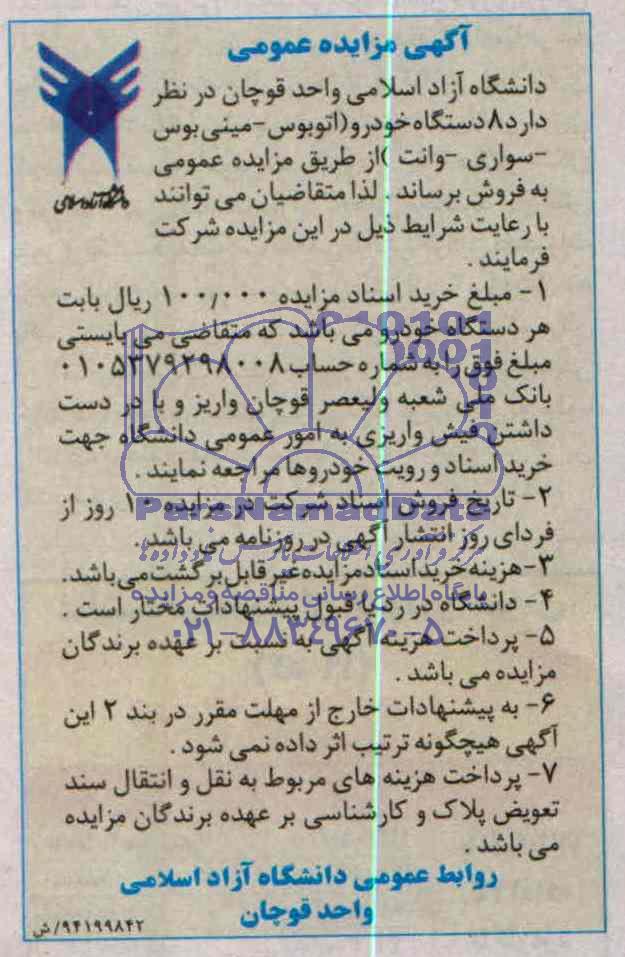 آگهی مزایده عمومی
دانشگاه آزاد اسلامی
دانشگاه آزاد اسلامی واحد قوچان در نظر
دارد ۸ دستگاه خودرو (اتوبوس - مینی بوس
- سواری - وانت) از طریق مزایده عمومی
به فروش برساند. لذا متقاضیان می توانند
با رعایت شرایط ذیل در این مزایده شرکت
فرمایند.
۱- مبلغ خرید اسناد مزایده ۱۰۰/۰۰۰ ریال بابت
هر دستگاه خودرو می باشد که متقاضی می بایستی
مبلغ فوق را به شماره حساب ۰۱۰۵۳۷۹۲۹۸۰۰۸
بانک ملی شعبه ولیعصر قوچان واریز و با در دست
داشتن فیش واریزی به امور عمومی دانشگاه جهت
خرید اسناد و رویت خودروها مراجعه نمایند.
۲- تاریخ فروش اسناد شرکت در مزایده ۱۰ روز از
فردای روز انتشار آگهی در روزنامه می باشد.
۳- هزینه خرید اسناد مزایده غیر قابل برگشت می باشد.
۴- دانشگاه در رد یا قبول پیشنهادات مختار است.
۵- پرداخت هزینه آگهی به نسبت بر عهده برندگان
مزایده می باشد.
۶- به پیشنهادات خارج از مهلت مقرر در بند ۲ این
آگهی هیچگونه ترتیب اثر داده نمی شود.
۷- پرداخت هزینه های مربوط به نقل و انتقال سند
تعویض پلاک و کارشناسی بر عهده برندگان مزایده
می باشد.
روابط عمومی دانشگاه آزاد اسلامی
واحد قوچان
۹۴۱۹۹۸۴۲/ش
ParsNamadData
پایگاه اطلاع رسانی مناقصه و مزایده
۰۲۱-۸۸۳۴۹۶۷۰-۵